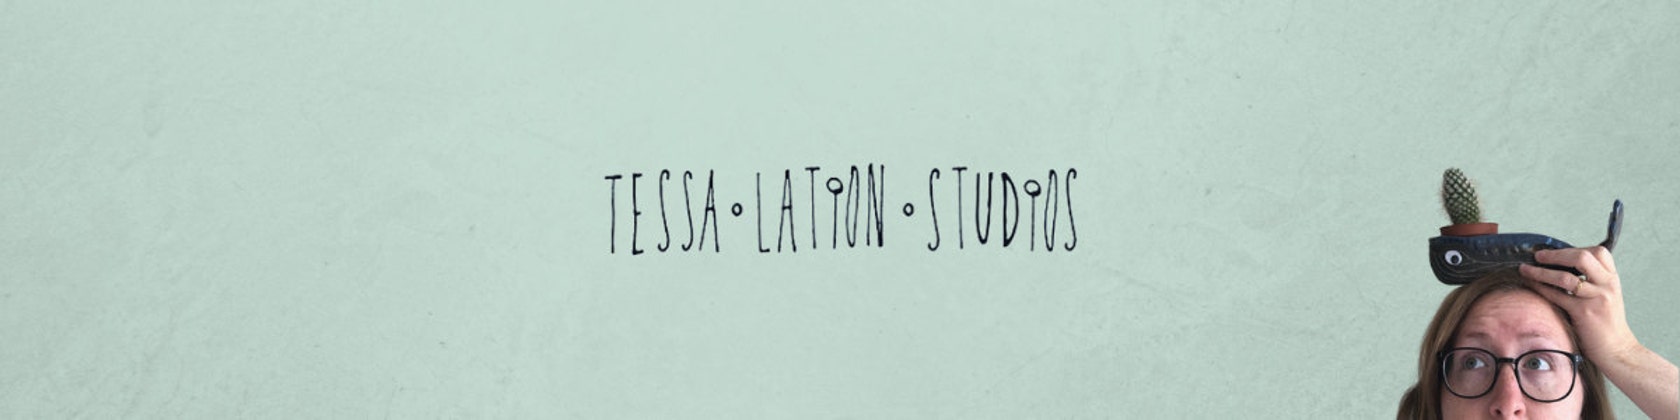 TESSA•LATION•STUDIOS